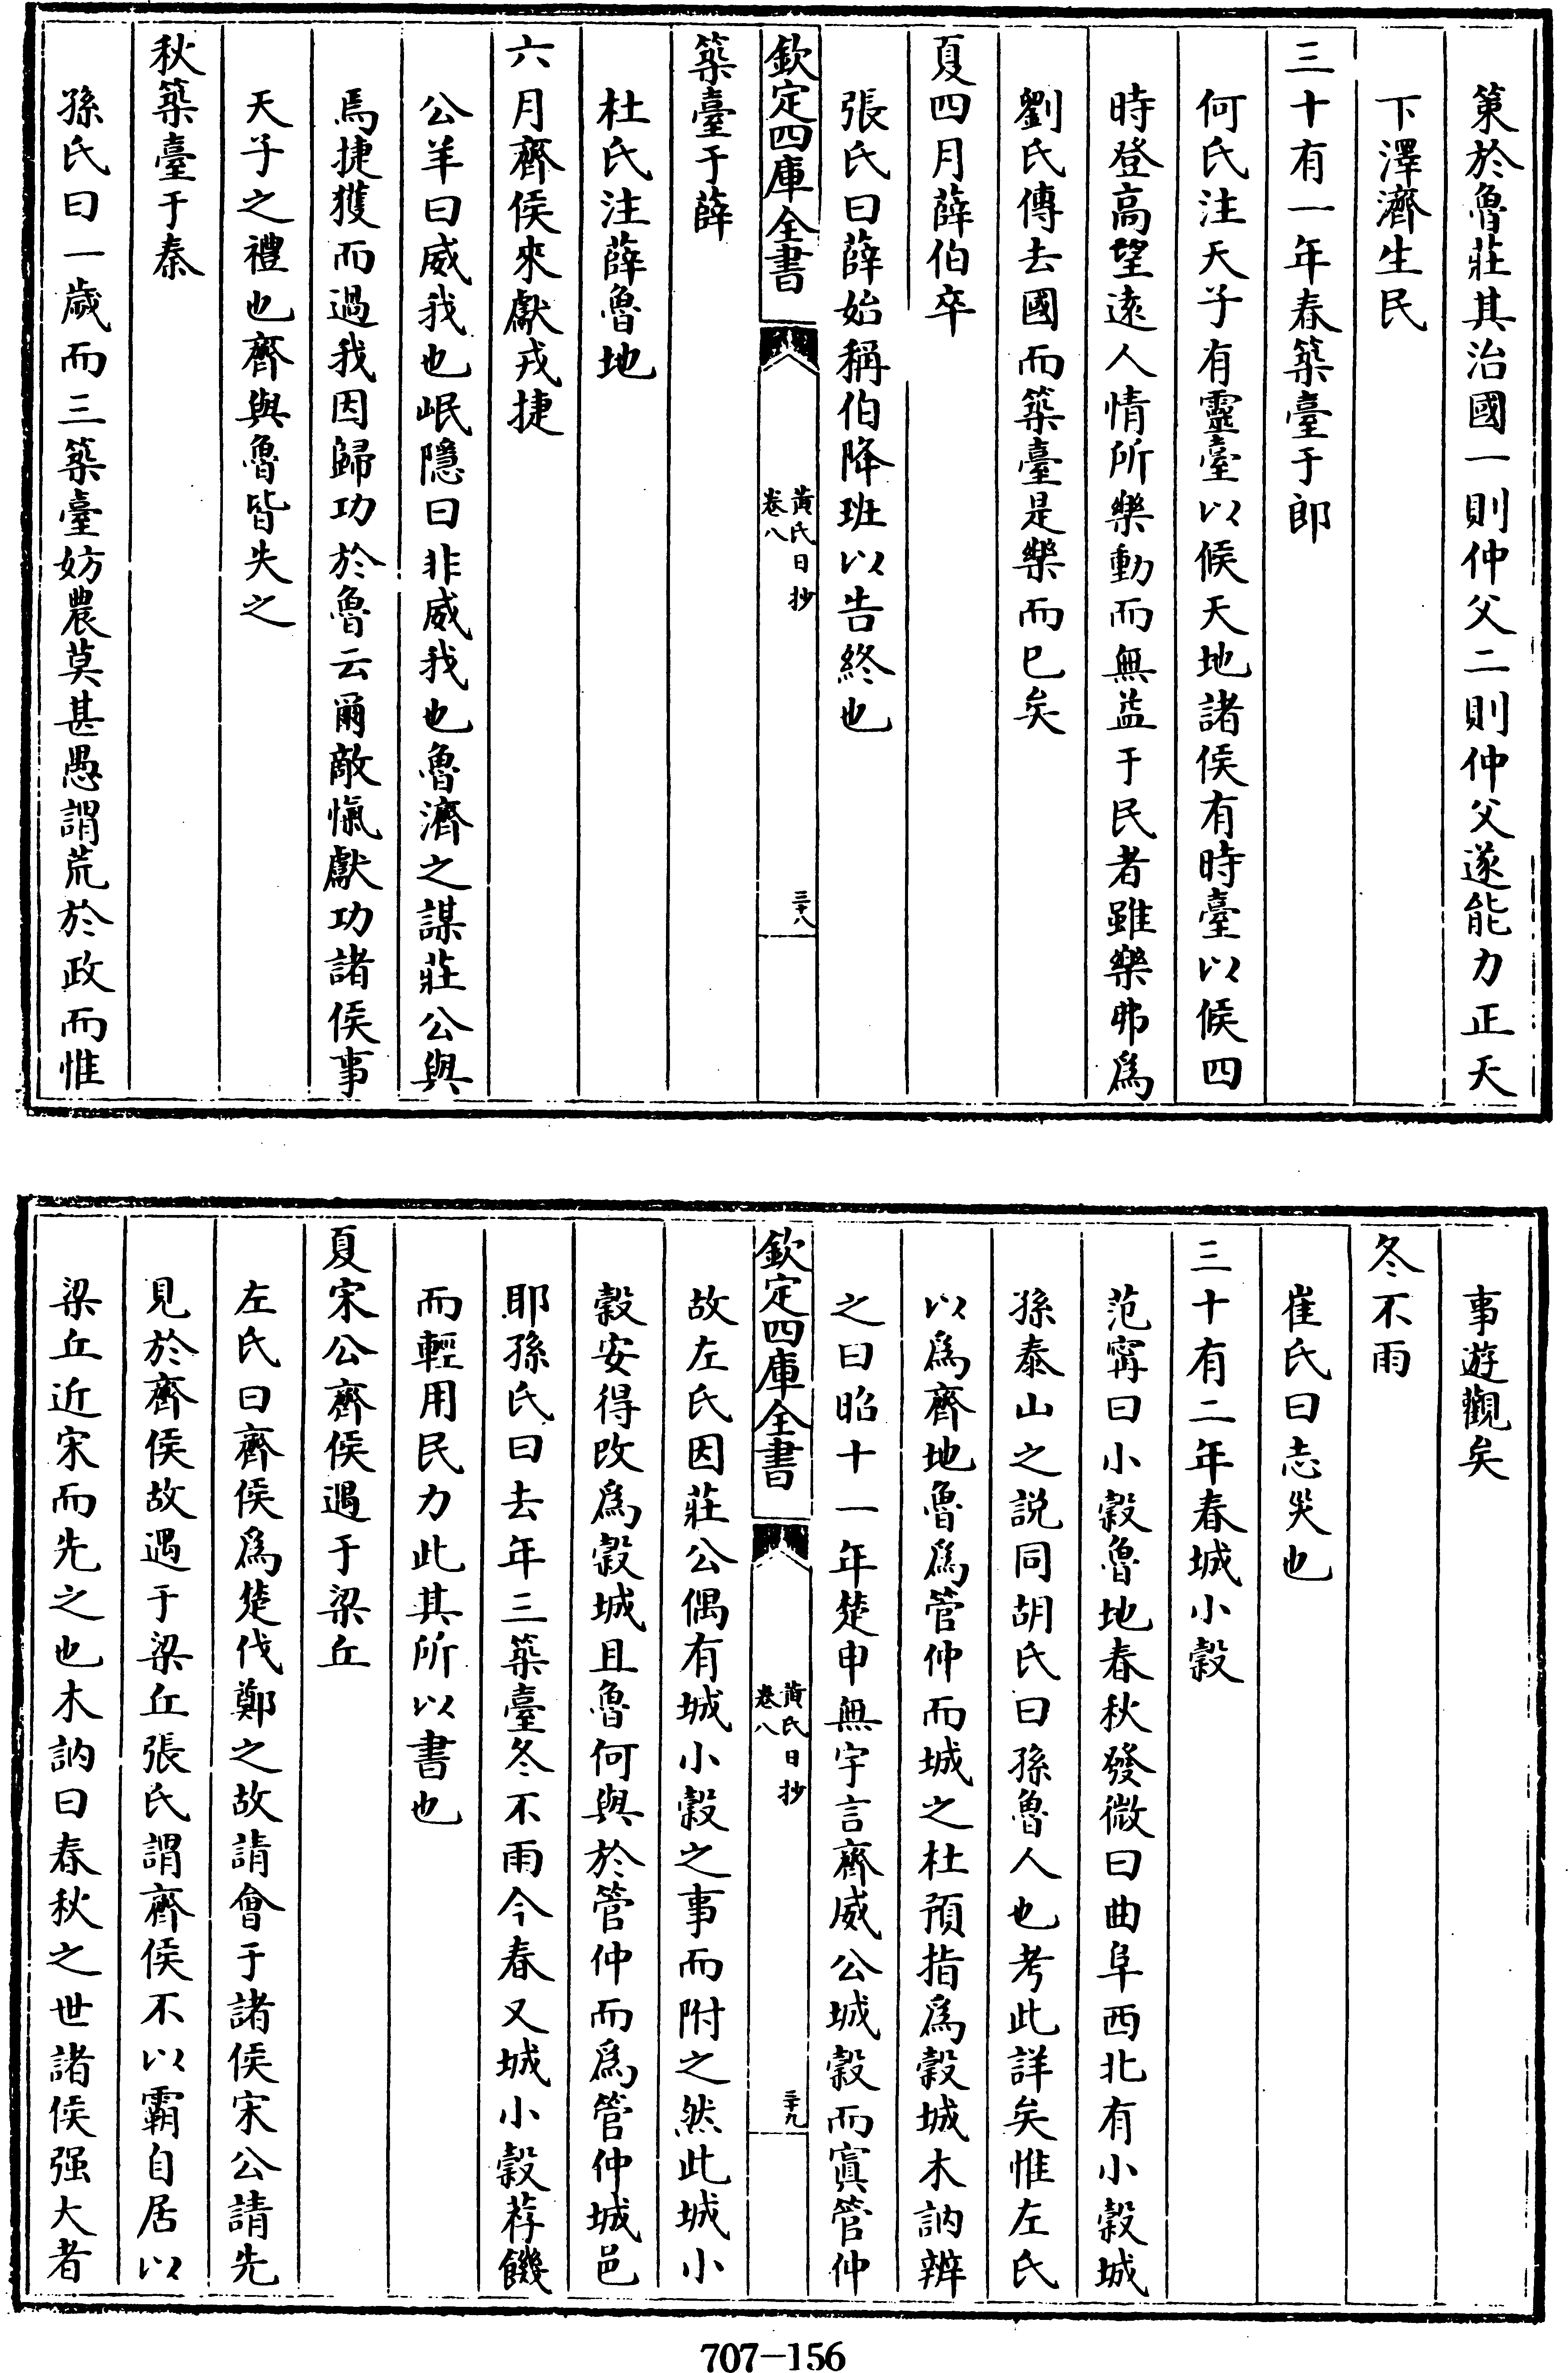 策於魯莊其治國一則仲父二則仲父遂能力正天
下澤濟生民
三十有一年春築臺于郎
何氏注天子有靈臺以候天地諸侯有時臺以候四
時登高望遠人情所樂動而無益于民者雖樂弗為
劉氏傳去國而築臺是樂而已矣
夏四月薛伯卒
張氏曰薛始稱伯降班以告終也
欽定四庫全書
黃氏日抄
卷八
三十八
築臺于薛
杜氏注薛魯地
六月齊侯來獻戎捷
公羊曰威我也岷隱曰非威我也魯濟之謀莊公與
焉捷獲而過我因歸功於魯云爾敵愾獻功諸侯事
天子之禮也齊與魯皆失之
秋築臺于秦
孫氏曰一歲而三築臺妨農莫甚愚謂荒於政而惟
事遊觀矣
冬不雨
崔氏曰志災也
三十有二年春城小穀
范甯曰小穀魯地春秋發微曰曲阜西北有小穀城
孫泰山之説同胡氏曰孫魯人也考此詳矣惟左氏
以為齊地魯為管仲而城之杜預指為穀城木訥辨
之曰昭十一年楚申無宇言齊威公城穀而寘管仲
欽定四庫全書
黃氏日抄
卷八
三十九
故左氏因莊公偶有城小穀之事而附之然此城小
穀安得改為穀城且魯何與於管仲而為管仲城邑
耶孫氏曰去年三築臺冬不雨今春又城小穀荐饑
而輕用民力此其所以書也
夏宋公齊侯遇于梁丘
左氏曰齊侯為楚伐鄭之故請會于諸侯宋公請先
見於齊侯故遇于梁丘張氏謂齊侯不以霸自居以
梁丘近宋而先之也木訥曰春秋之世諸侯强大者
707-156